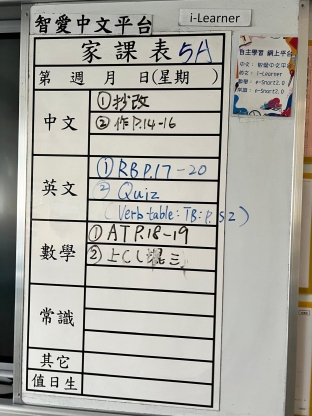 智愛中文平台
i-Learner
家課表 5A
自主學習 網上平台
中文：智愛中文平台
英文：i-Learner
數學：e-Smart2.0
常識：e-Smart2.0
第 週 月 日(星期 )
中文
①抄改
②作P.14-16
英文
①RB P.17-20
②Quiz
(Verb table: TB: P.52)
數學
①AT P.18-19
②上CL
常識
其它
值日生